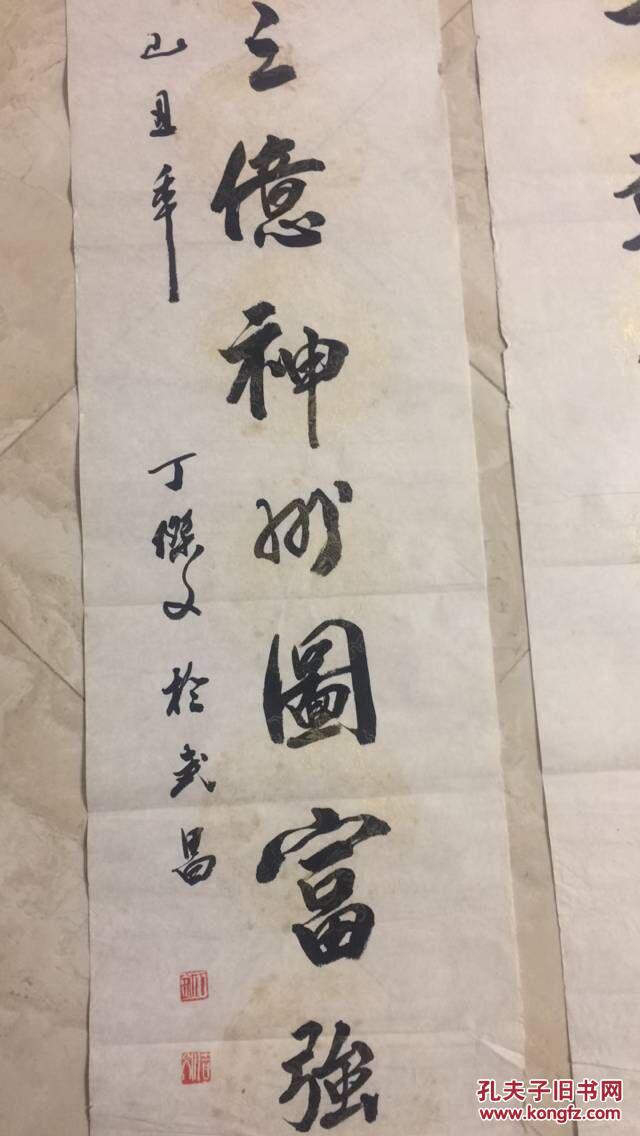 三億神州圖富強
己丑年
丁傑文於武昌
孔夫子旧书网
www.kongfz.com